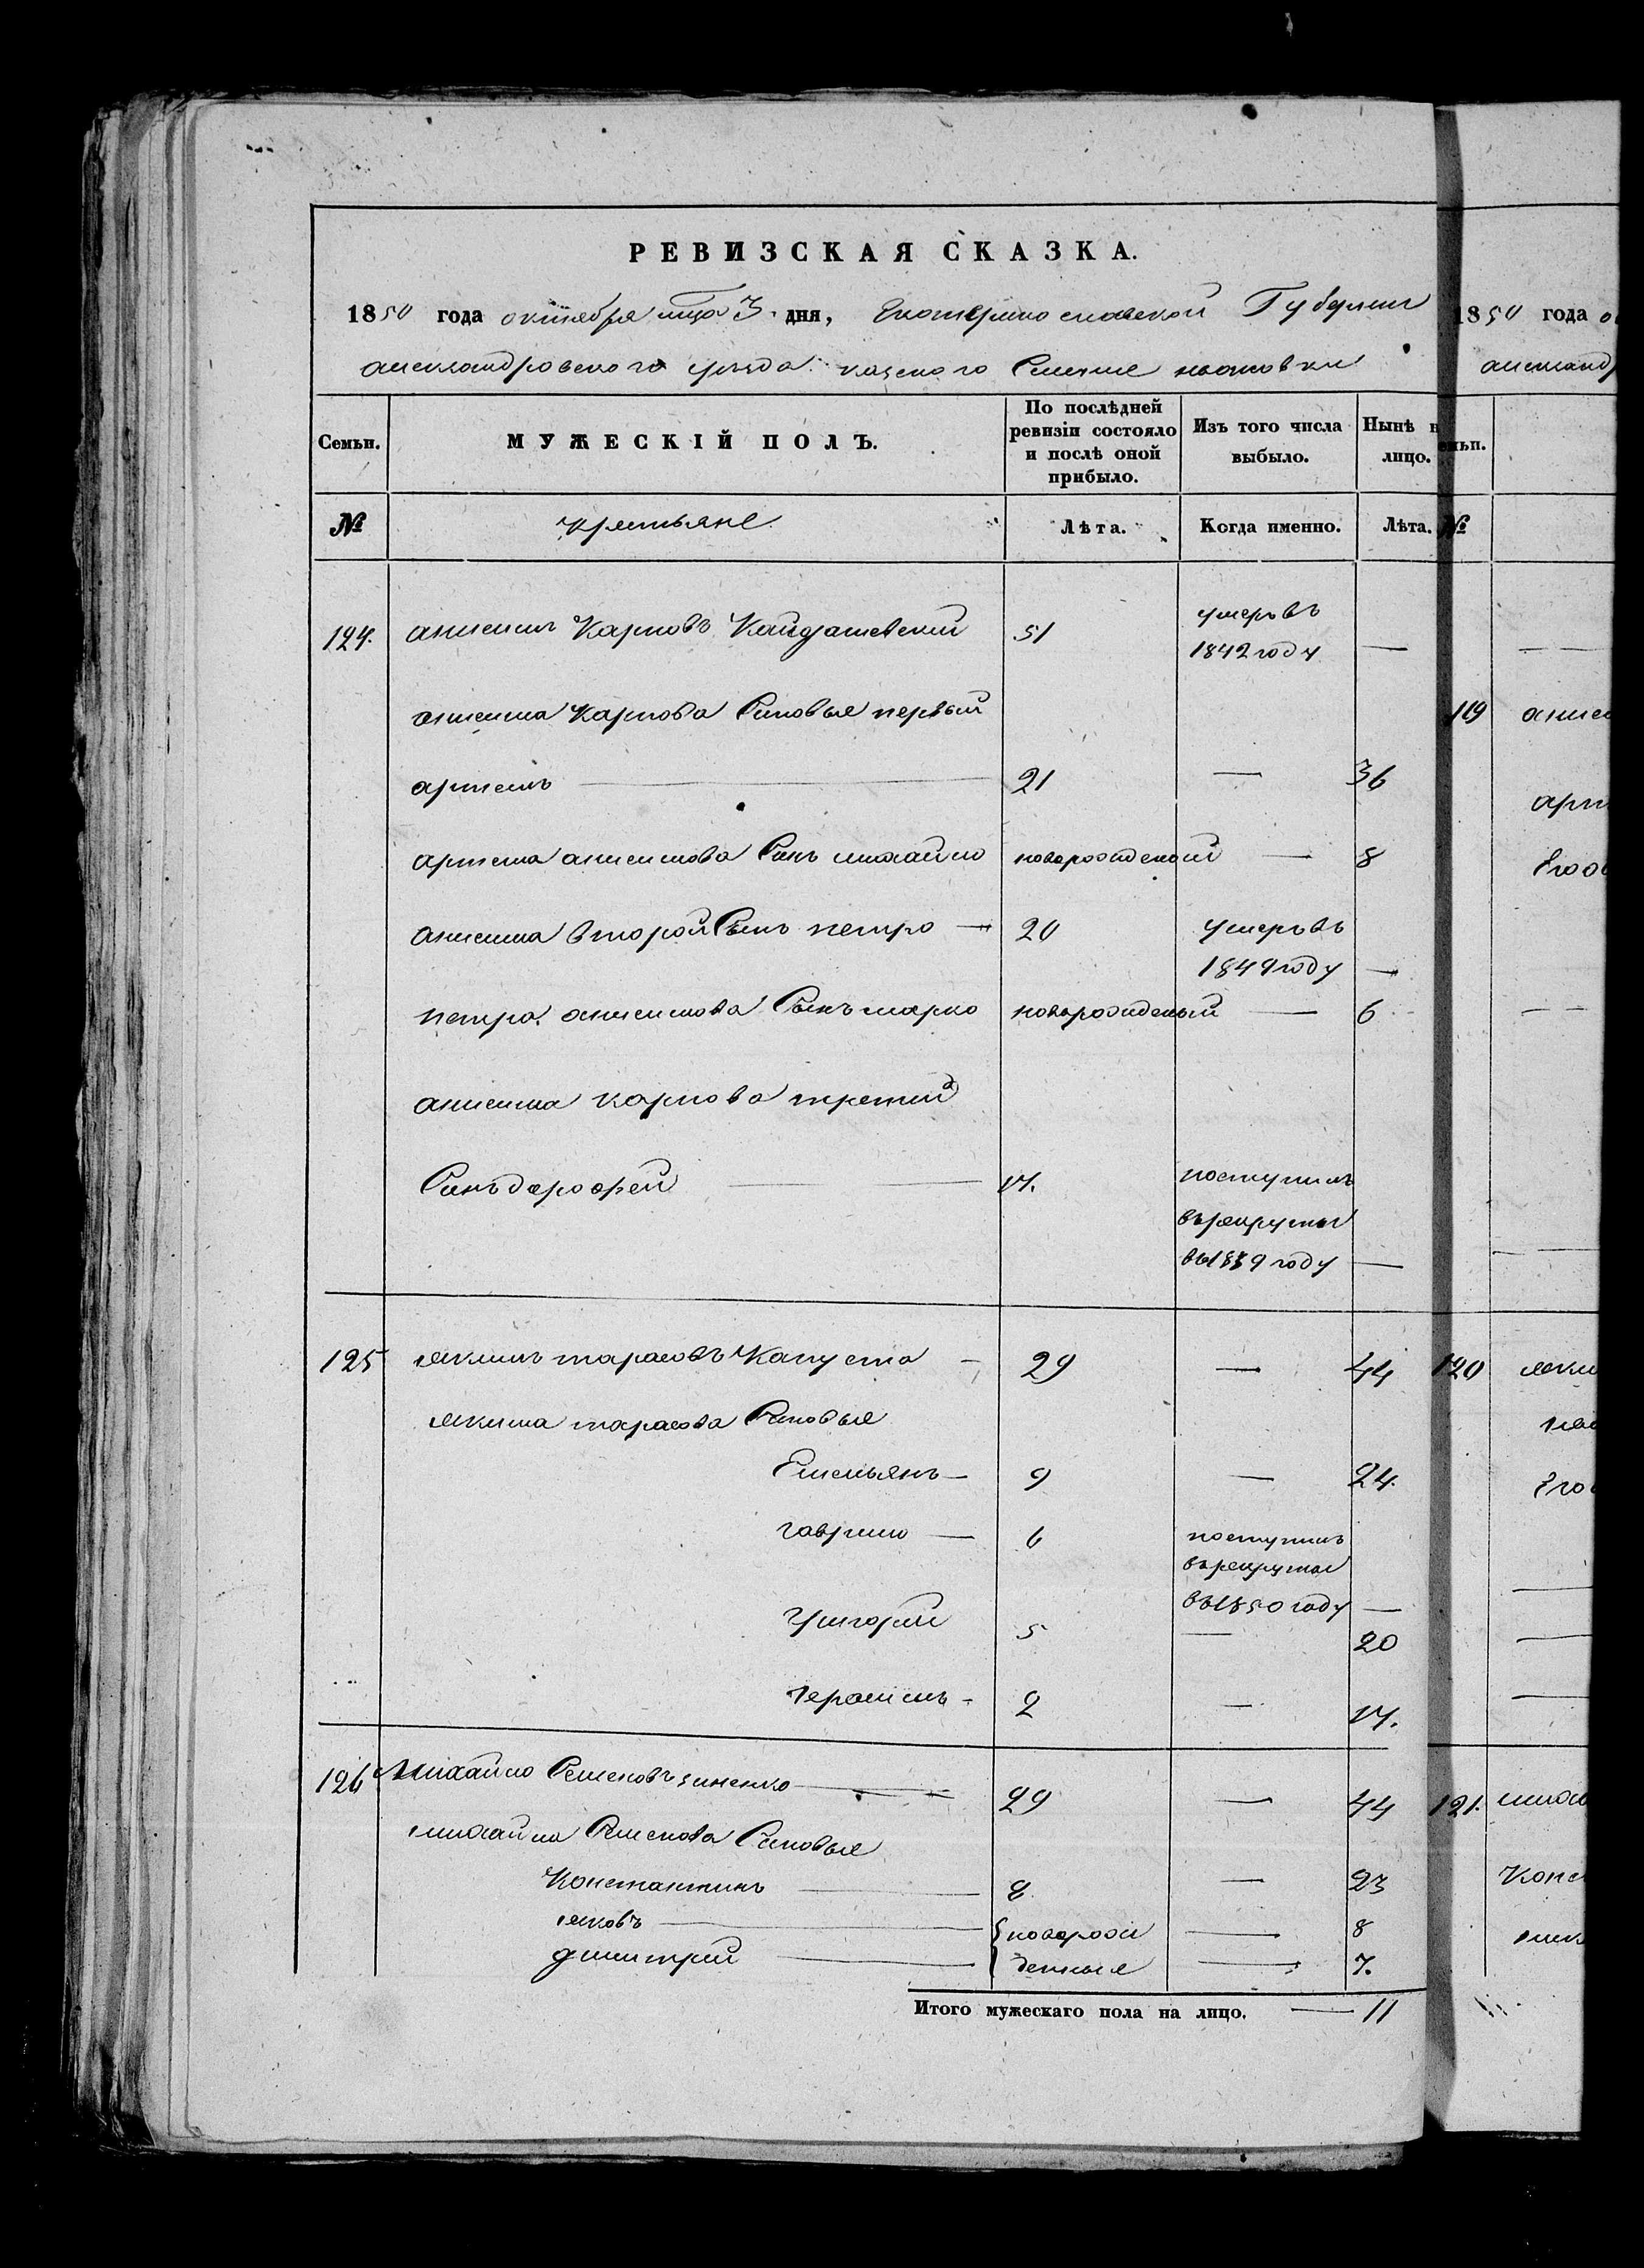 РЕВИЗСКАЯ СКАЗКА.
1850 года октября мца 3. дня, Екатеринославской Губернии
александровского уезда казеного Селение
Семьи.
МУЖЕСКІЙ ПОЛЪ.
По послѣдней ревизіи состояло и послѣ оной прибыло.
Изъ того числа выбыло.
Нынѣ н лицо.
№ крестьяне Лѣта. Когда именно. Лѣта.
124. анисим Карповъ Кайдашевский 51 умеръ въ 1842 году —
анисима Карпова Сыновья первый
артемъ — 21 — 36
артема анисимова Сынъ михайло новорожденой — 8
анисима второй Сынъ петро — 20 умеръ въ 1849 году —
петра анисимова Сынъ марко новорожденый — 6
анисима карпова третий
Сынъ дорофей — 17. поступилъ в рекруты въ 1839 году —
125 якимъ тарасовъ Капуста — 29 — 44
якима тарасова Сыновья
Емельянъ — 9 — 24.
гаврило — 6 поступилъ в рекруты въ 1850 году —
григорий 5 — 20
герасимъ - 2 — 17.
126 Михайло Семеновъ зиненко — 29 — 44
михайла Семенова Сыновья
Константинъ — 8 — 23
яковъ — новорож — 8
дмитрий — денныя — 7.
Итого мужескаго пола на лицо. — 11
1850 года о
александ
емьи.
№
119 анис
арт
Его
120 яким
Его
121. миха
Конс